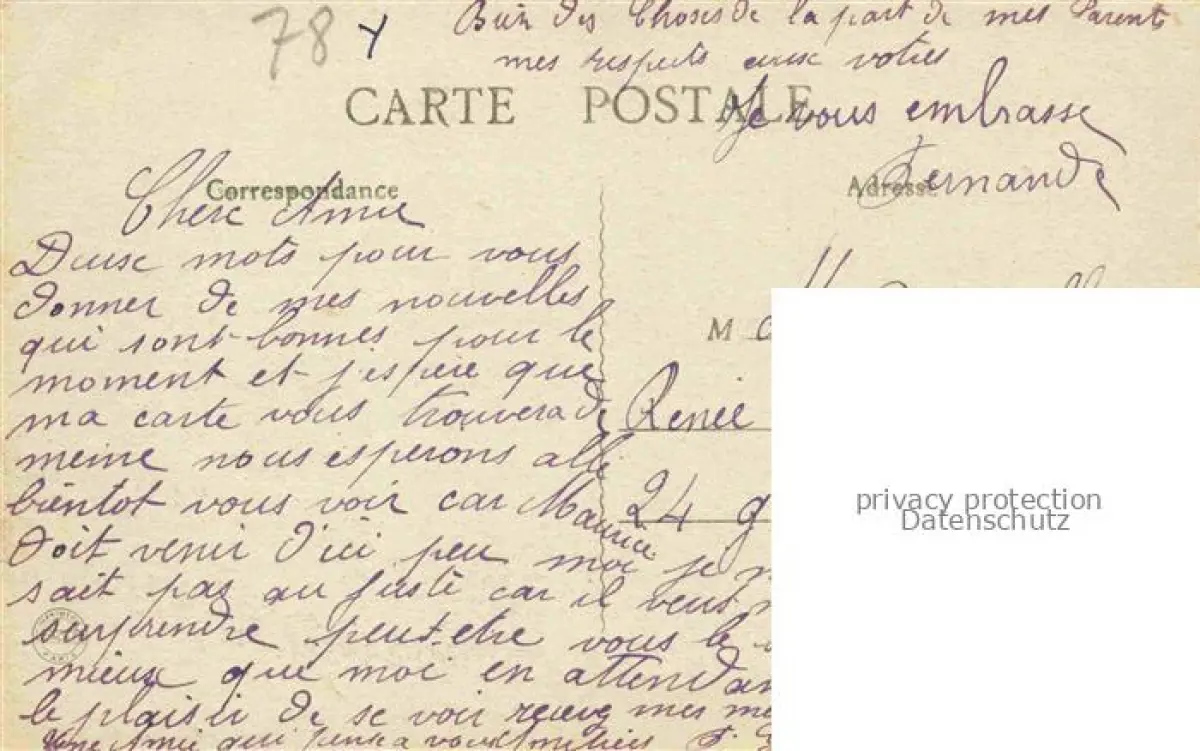 78 Y
Bien des Choses de la part de mes Parents
mes respects aux votres
CARTE POSTALE
Je vous embrasse
Fernande
Correspondance
Adresse
Chere Amie
Deux mots pour vous
donner de mes nouvelles
qui sont bonnes pour le
moment et j'espere que
ma carte vous trouvera de
meine nous esperons allé
bientot vous voir car Maurice
doit venir d'ici peu moi je n
sait pas au juste car il veut
surprendre peut-etre vous le
mieux que moi en attendan
le plaisir de se voir recevez mes me
Une Amie qui pense a vous F.
M
Renée
24 g
privacy protection
Datenschutz
PARIS